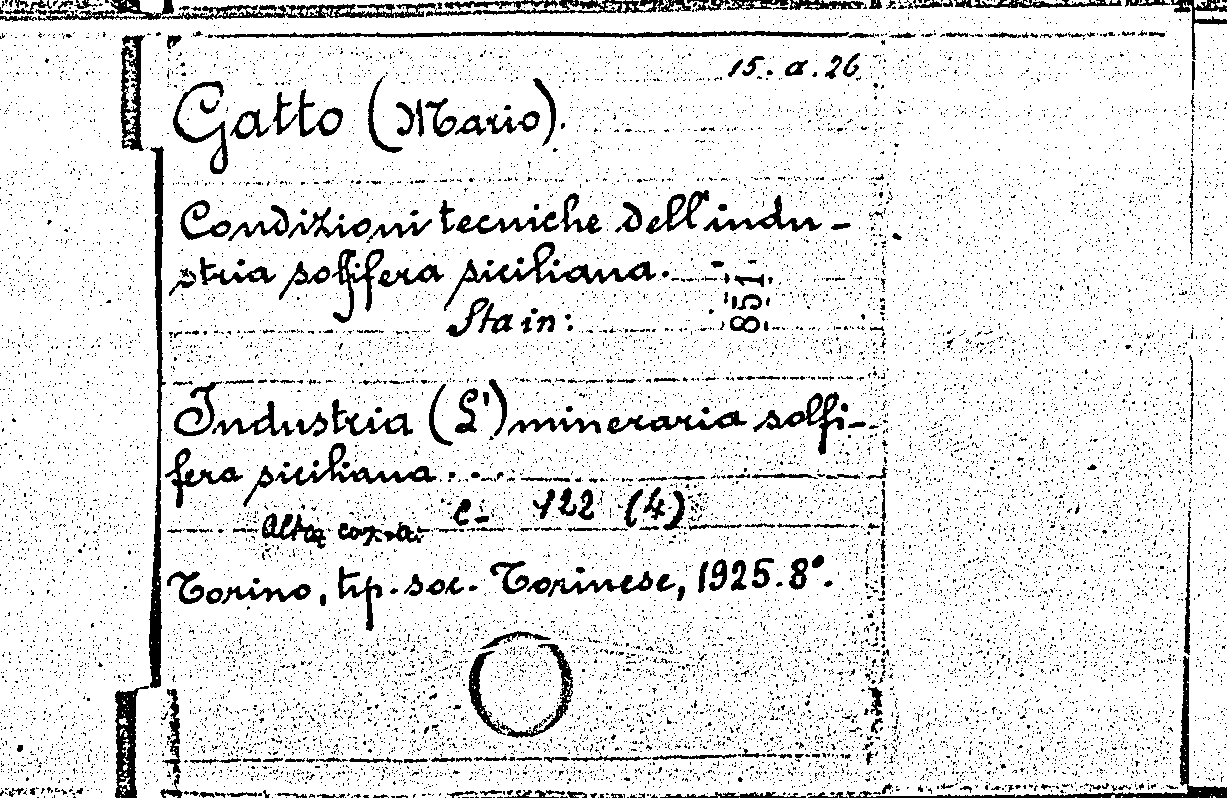 15. a. 26
Gatto (Mario).
Condizioni tecniche dell'indu-
stria solfifera siciliana.
851
Sta in:
Industria (L') mineraria solfi-
fera siciliana ...
c- 122 (4)
Altra copia:
Torino, tip. soc. Torinese, 1925. 8°.